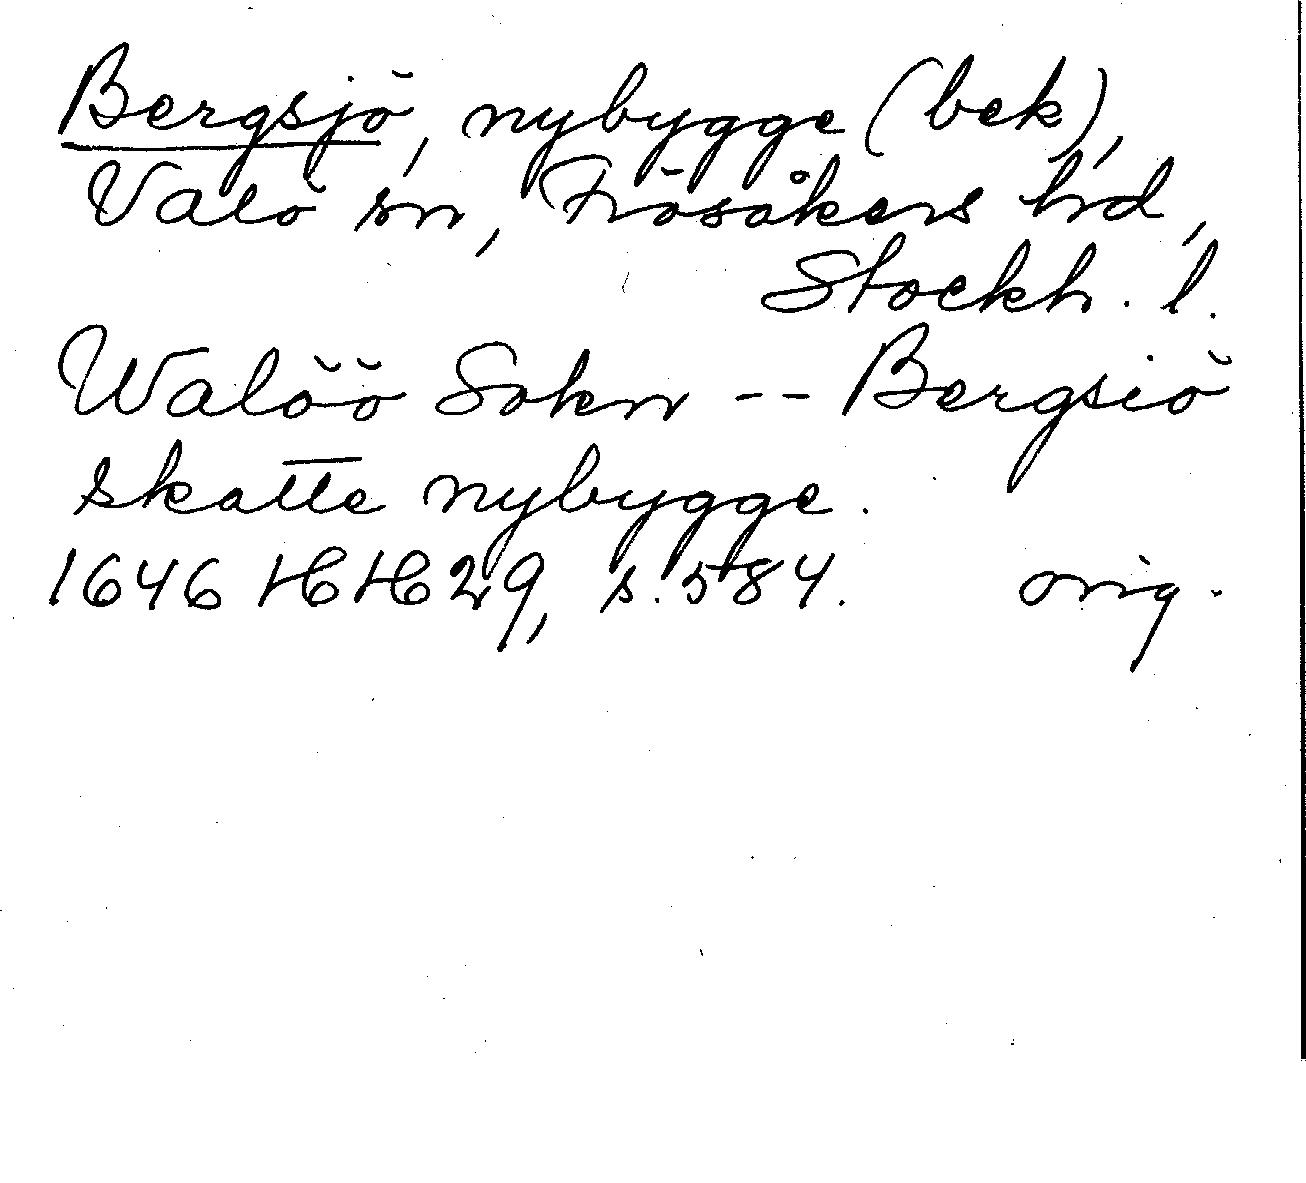 Bergsjö, nybygge (bek),
Valö sn, Frösåkers hrd,
Stockh. l.
Walöö Sokn -- Bergsiö
skatte nybygge.
1646 HH 29, s. 584. orig.